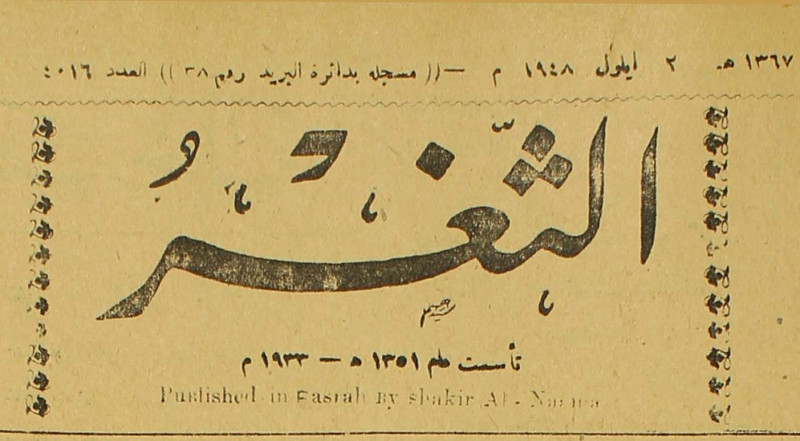 ١٣٦٧ هـ ٢ ايلول ١٩٤٨ م —(( مسجله بدائرة البريد رقم ٣٨ )) العدد ٤٠١٦
الثَّغْرُ
تأسست عام ١٣٥١ ه — ١٩٣٣ م
Published in Basrah By shakir Al-